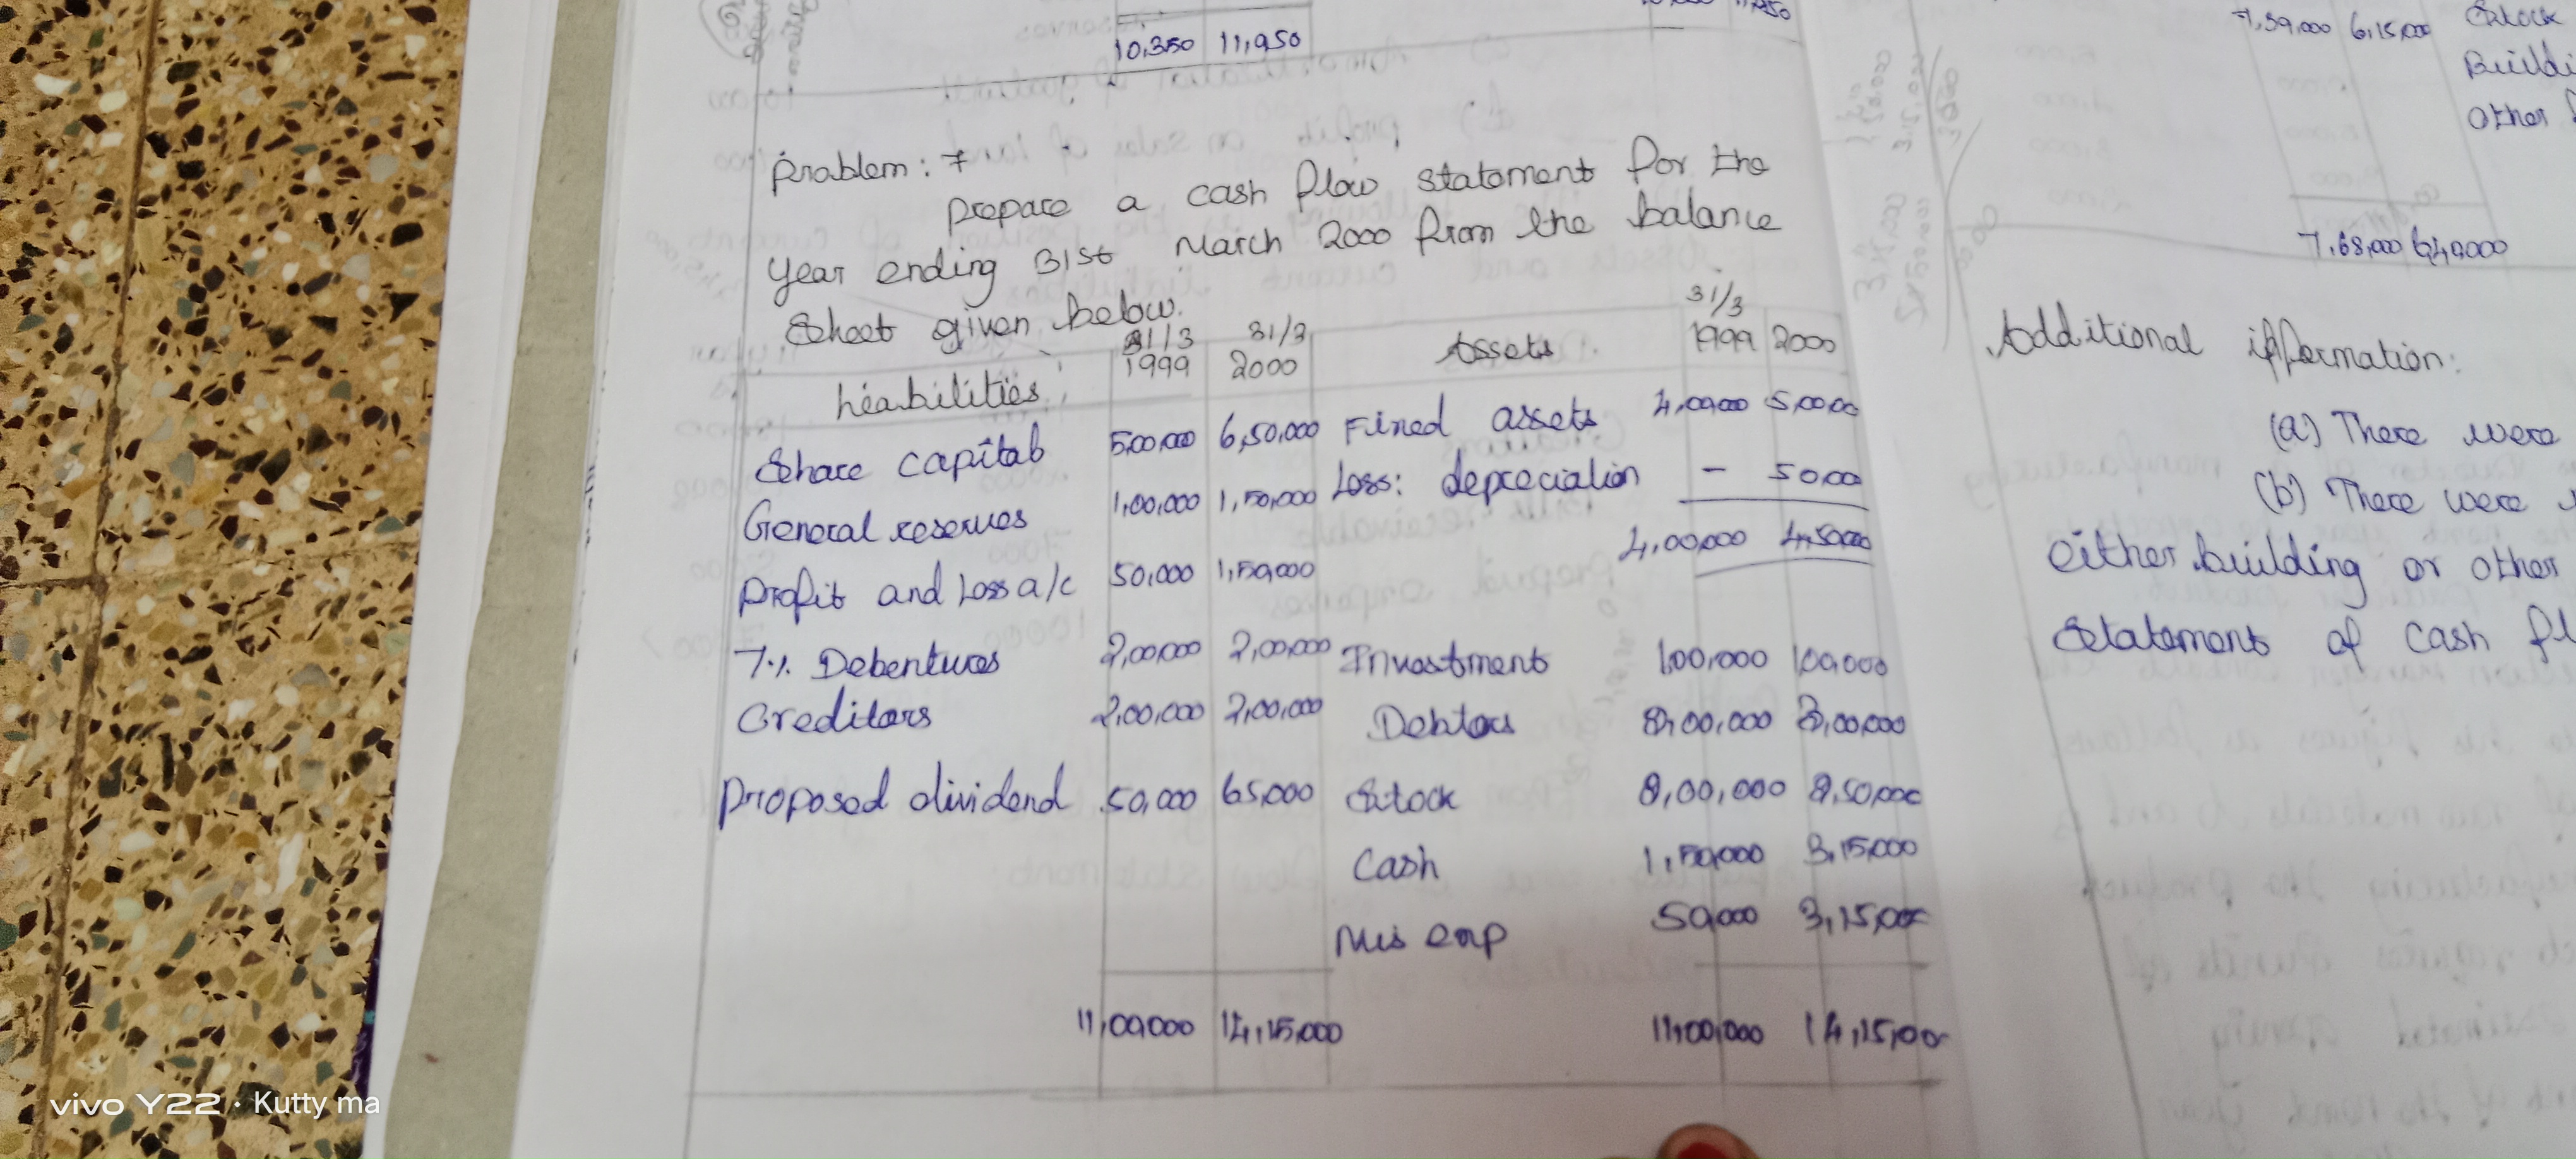 10,350 11,950
7,59,000 6,15,000 Stock
Buildi
other
7,68,000 6,49,000
Problem: 7
Prepare a cash flow statement for the
year ending 31st March 2000 from the balance
Sheet given below.
Liabilities 31/3 1999 31/3 2000 Assets 31/3 1999 2000
Share capital 5,00,000 6,50,000 Fixed assets 4,00,000 5,00,00
General reserves 1,00,000 1,50,000 Less: depreciation - 50,00
4,00,000 4,50,000
Profit and Loss a/c 50,000 1,50,000
7% Debentures 2,00,000 2,00,000 Investment 1,00,000 1,00,000
Creditors 2,00,000 2,00,000 Debtors 2,00,000 2,00,000
Proposed dividend 50,000 65,000 Stock 2,00,000 2,50,000
Cash 1,50,000 3,15,000
Mis exp 50,000 3,15,000
11,00,000 14,15,000 11,00,000 14,15,00
Additional information:
(a) There were
(b) There were
either building or other
Statement of cash fl
vivo Y22 · Kutty ma